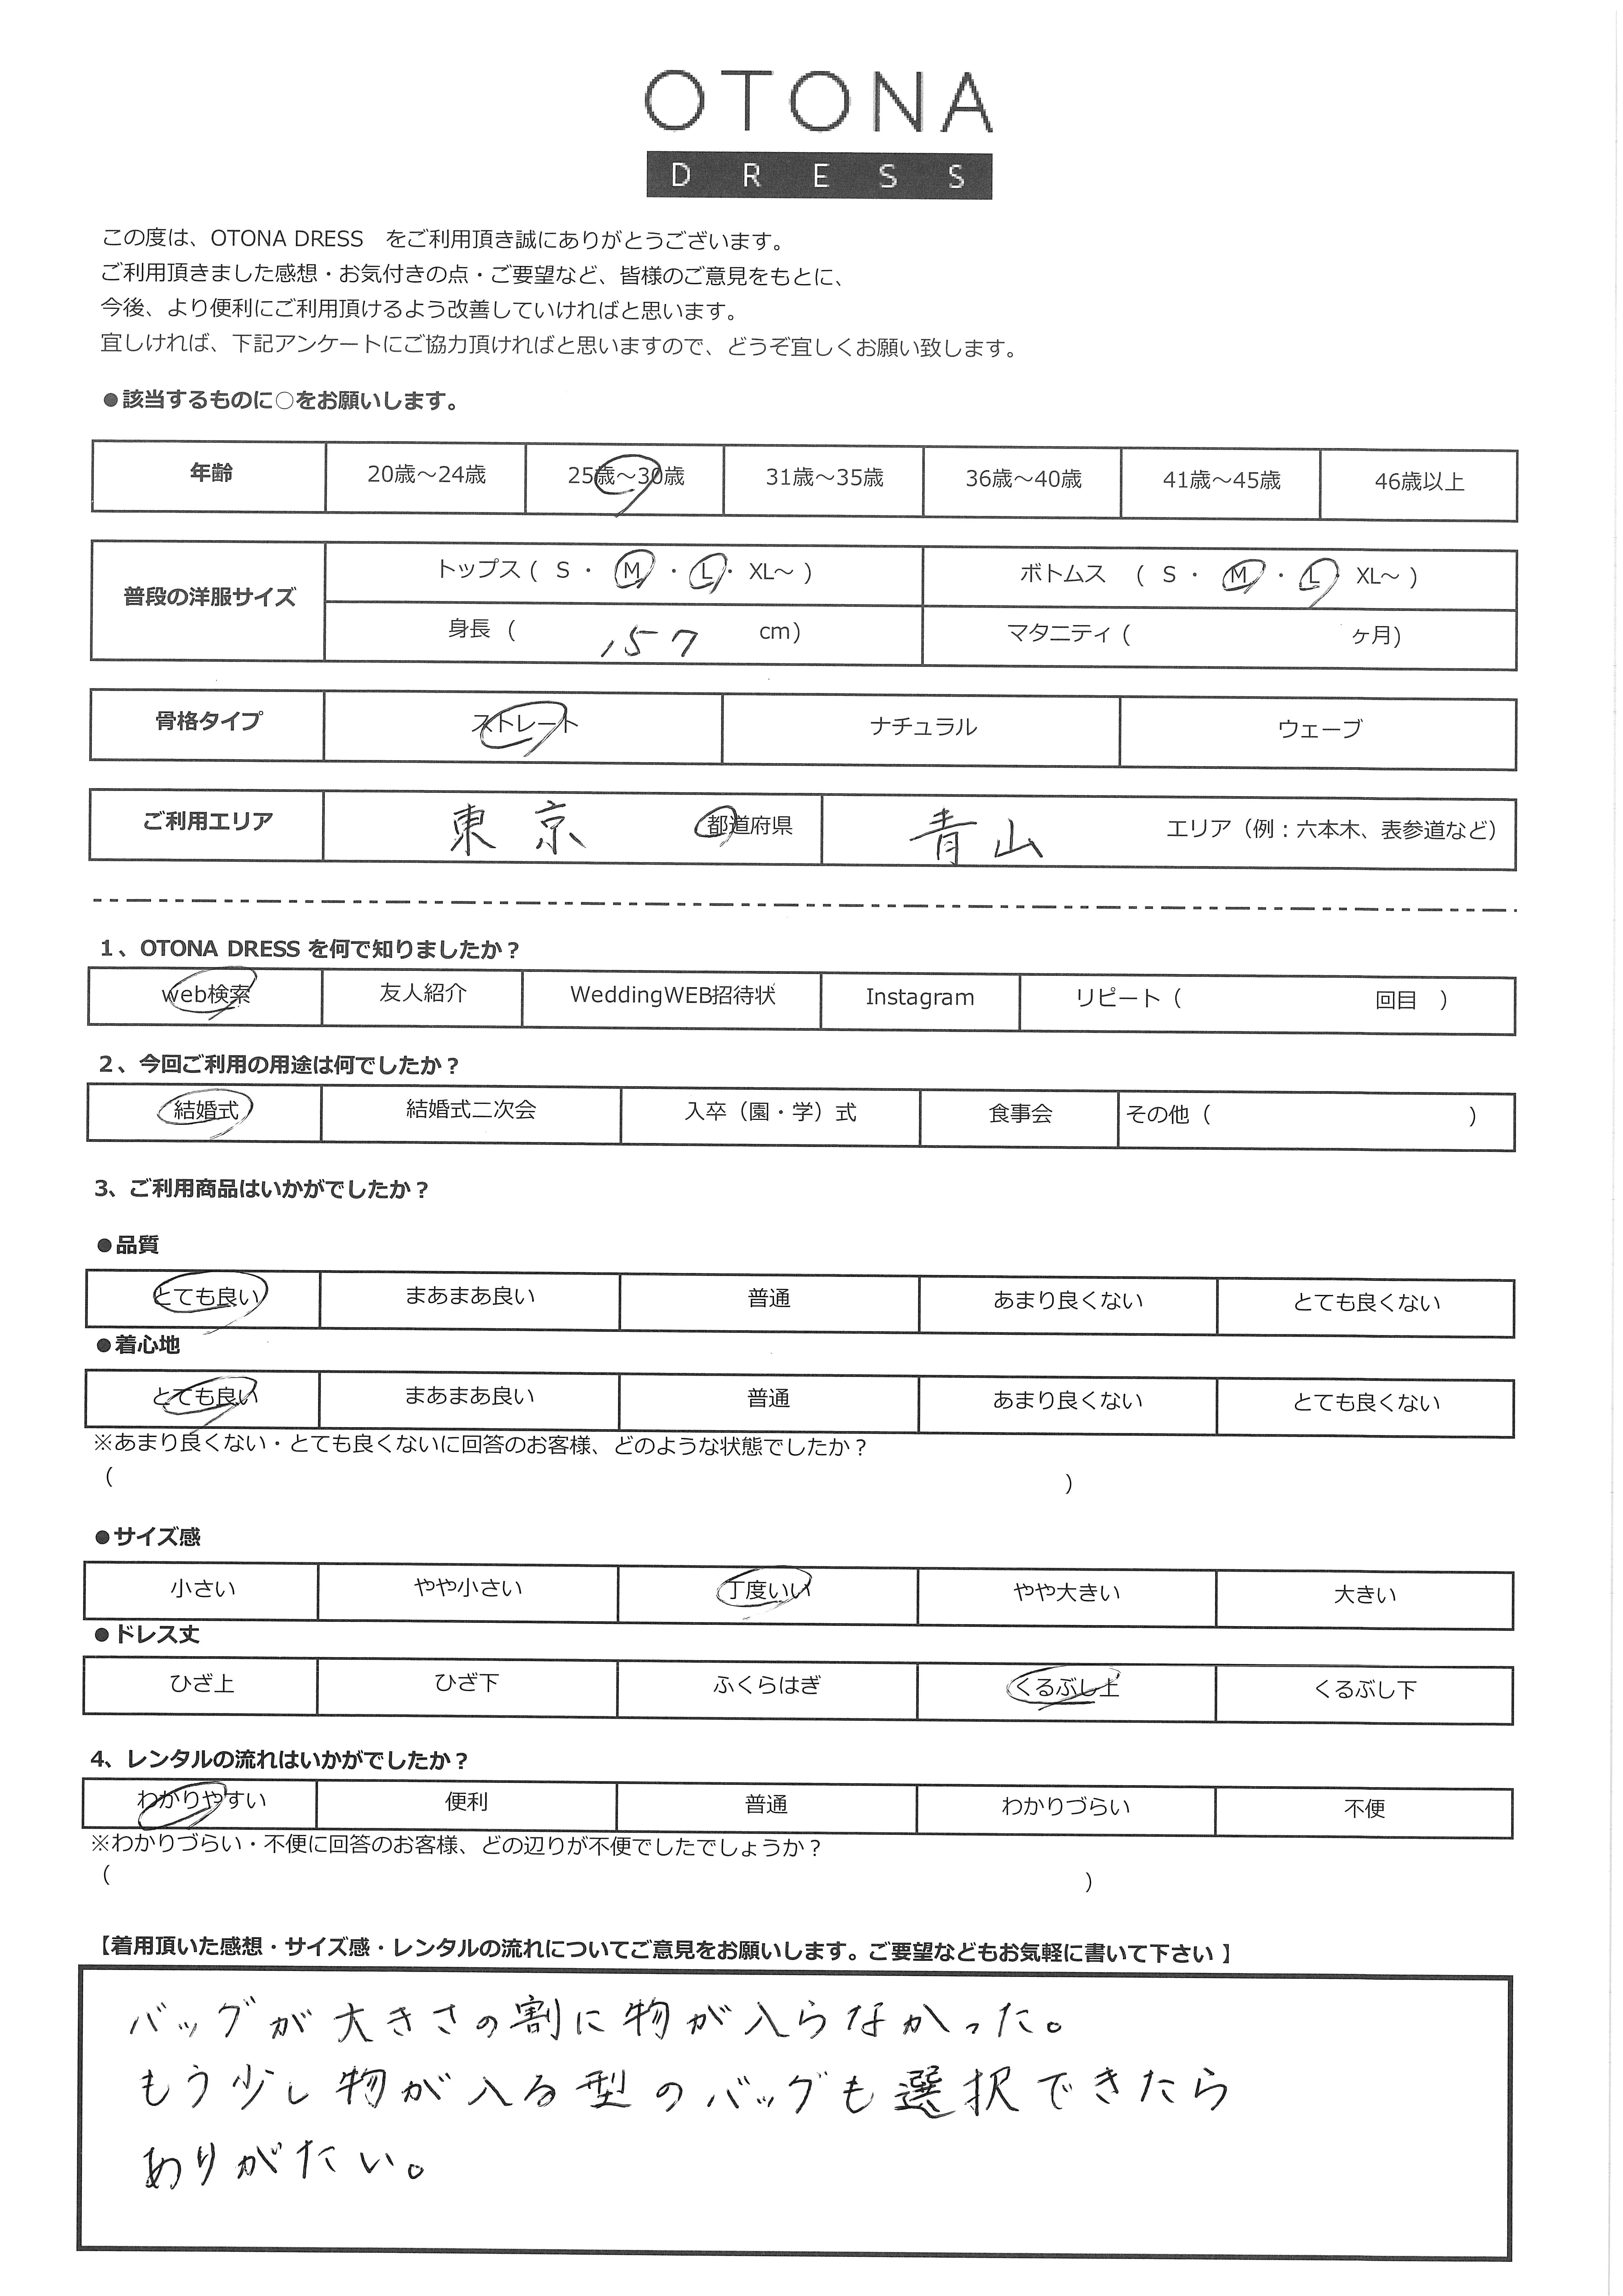 OTONA
DRESS
この度は、OTONA DRESS　をご利用頂き誠にありがとうございます。
ご利用頂きました感想・お気付きの点・ご要望など、皆様のご意見をもとに、
今後、より便利にご利用頂けるよう改善していければと思います。
宜しければ、下記アンケートにご協力頂ければと思いますので、どうぞ宜しくお願い致します。
●該当するものに○をお願いします。
年齢 20歳～24歳 25歳～30歳 31歳～35歳 36歳～40歳 41歳～45歳 46歳以上
普段の洋服サイズ トップス ( S ・ M ・ L ・ XL～ ) ボトムス ( S ・ M ・ L ・ XL～ )
身長 ( 157 cm) マタニティ ( ヶ月)
骨格タイプ ストレート ナチュラル ウェーブ
ご利用エリア 東京 都道府県 青山 エリア（例：六本木、表参道など）
1、OTONA DRESS を何で知りましたか？
web検索 友人紹介 WeddingWEB招待状 Instagram リピート（ 回目 ）
2、今回ご利用の用途は何でしたか？
結婚式 結婚式二次会 入卒（園・学）式 食事会 その他（ ）
3、ご利用商品はいかがでしたか？
●品質
とても良い まあまあ良い 普通 あまり良くない とても良くない
●着心地
とても良い まあまあ良い 普通 あまり良くない とても良くない
※あまり良くない・とても良くないに回答のお客様、どのような状態でしたか？
( )
●サイズ感
小さい やや小さい 丁度いい やや大きい 大きい
●ドレス丈
ひざ上 ひざ下 ふくらはぎ くるぶし上 くるぶし下
4、レンタルの流れはいかがでしたか？
わかりやすい 便利 普通 わかりづらい 不便
※わかりづらい・不便に回答のお客様、どの辺りが不便でしたでしょうか？
( )
【着用頂いた感想・サイズ感・レンタルの流れについてご意見をお願いします。ご要望などもお気軽に書いて下さい 】
バッグが大きさの割に物が入らなかった。
もう少し物が入る型のバッグも選択できたら
ありがたい。